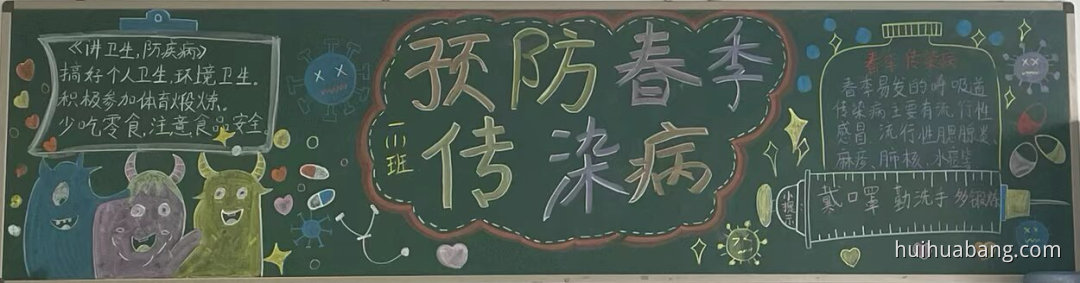 《讲卫生,防疾病》
搞好个人卫生,环境卫生。
积极参加体育煅炼。
少吃零食,注意食品安全
预防春季
传染病
一(1)班
春季传染病
春季易发的呼吸道
传染病主要有流行性
感冒.流行性腮腺炎.
麻疹.肺核.水痘等
小提示
戴口罩 勤洗手 多锻炼
huihuabang.com